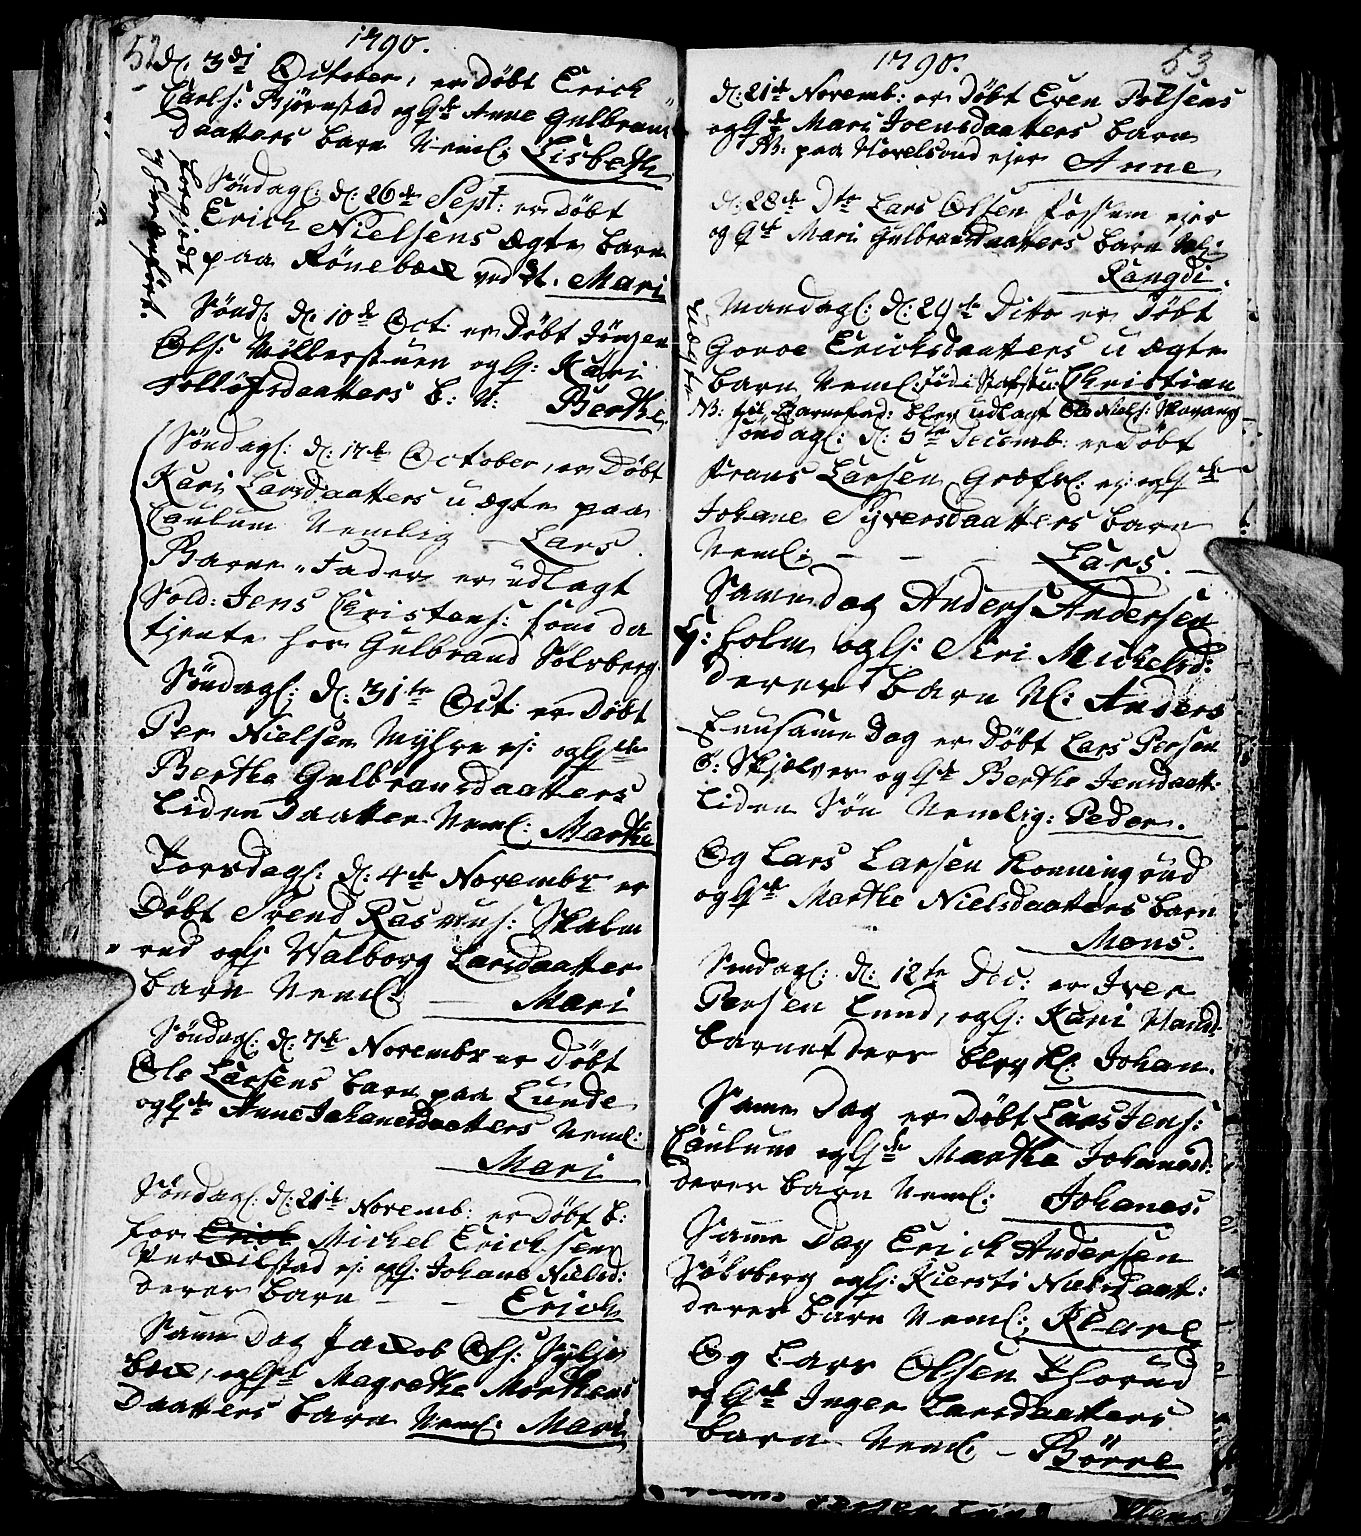 52
1790.
d: 3di October, er Døbt Erich
Carls: Bjørnstad og Hst: Anne Gulbrans
daatters barn Neml: Lisbeth
Søndag: d: 26de Sept: er Døbt
Erich Nielsens ægte barn
paa Rønebæk ved N. Mari
forgiædt
Sønd: d: 10de Oct: er Døbt Jørgen
Ols: Møllerstuen og H: Kari
Tollofsdaatters b: N: Berthe
Søndag: d: 17de October, er Døbt
Kari Larsdaatters u ægte paa
Caulum Nemlig – Lars.
Barne-Fader er udlagt
Sold: Jens Christens: som da
tjente hos Gulbrand Sølvberg.
Søndag: d: 31te Oct: er Døbt
Per Nielsen Myhre ej: og Hst:
Berthe Gulbransdaatters
Liden Daatter Neml: Marthe
Torsdag: d: 4de Novembr er
Døbt Svend Rasmus: Skalm
rud og H: Walborg Larsdaatter
barn Neml: – Mari
Søndag: d: 7de Novembr er Døbt
Ole Larsens barn paa Lunde
og Hst: Anne Johanesdaatters Neml:
Mari
Søndag: d: 21de Novemb: er Døbt b:
for Erich Michel Ericksen
ej: og H: Johane Nielsd:
deres barn – – Erich
Same Dag Jacob Ols: Sylje
bæk, og Hst: Magrethe Morthens
Daatters barn Neml: Mari
1790.
53
d: 21de Novemb: er Døbt Even Polsens
og Hst: Mari Joensdaatters barn
NB: paa Hovelsrud ejer Anne
d: 28de Dto Lars Olsen Fossum ejer
og Hst: Mari Gulbransdaatters barn Nl:
Rangdi.
uægte
Mandag: d: 29de Dito er Døbt
Goroe Ericksdaatters u ægte
barn Neml: Christian
NB: til Barnefad: blev udlagt Ole Niels: Skavang
Søndag: d: 5te Decemb: er Døbt
Frans Larsen ej: og Hst:
Johane Syversdaatters barn
Neml: – – – Lars. –
Same dag Anders Andersen
H: holm og H: Siri Mickelsd:
deres barn Nl: Anders
Ennu same Dag er Døbt Lars Persen
Ø: Skjølver og Hst: Berthe Jensdaatt:
Liden Søn Nemlig: Peder.
Og Lars Larsen Honningrud
og Hst: Marthe Nielsdaatters barn
Mons.
Søndag: d: 12te Dec: er Iver
Persen Lund, og H: Kari Hansd:
barnet ders blev Nl: Johan.
Same Dag er Døbt Lars Jens:
Caulum og Hst: Marthe Johanesd:
deres barn Neml: Johanes:
Same Dag Erick Andersen
Sølvberg og H: Kiersti Nielsdaat:
deres barn Neml: Klare
Og Lars Olsen Thorud
og Hst: Inger Larsdaatters
barn Neml: – Børre